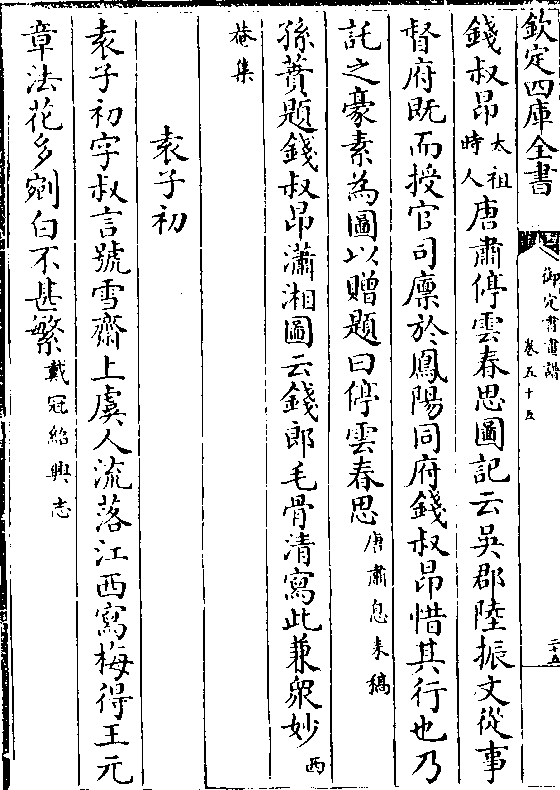 欽定四庫全書
御定書畫譜
卷五十五
二十五
錢叔昂太祖時人唐肅停雲春思圖記云吳郡陸振文從事
督府既而授官司廪於鳳陽同府錢叔昂惜其行也乃
託之豪素為圖以贈題曰停雲春思唐肅息耒稿
孫蕡題錢叔昂瀟湘圖云錢郎毛骨清寫此兼衆妙西
菴集
袁子初
袁子初字叔言號雪齋上虞人流落江西寫梅得王元
章法花多劑白不甚繁戴冠紹興志